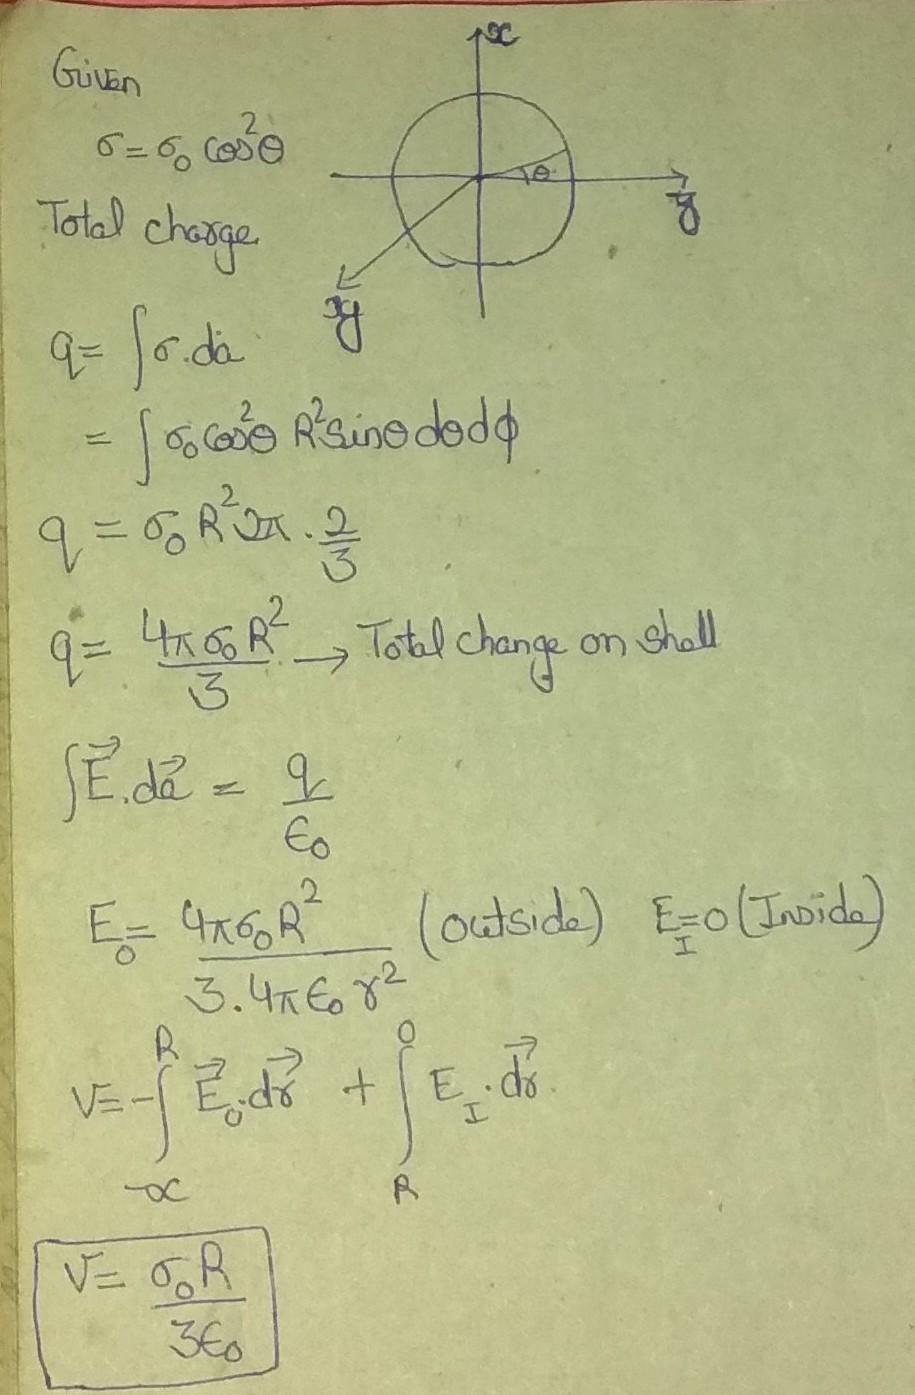 Given
x
σ = σ₀ cos²θ
θ
Total charge
y
q = ∫σ.da
= ∫σ₀ cos²θ R² sinθ dθ dϕ
q = σ₀ R² 2π . 2/3
q = 4πσ₀R²/3 → Total change on shell
∫E⃗.da⃗ = q/ε₀
E₀ = 4πσ₀R²/3.4πε₀r² (outside) E_I = 0 (Inside)
V = -∫_{-∝}^{R} E⃗₀.dr⃗ + ∫_{R}^{0} E_I.dr⃗.
V = σ₀R/3ε₀